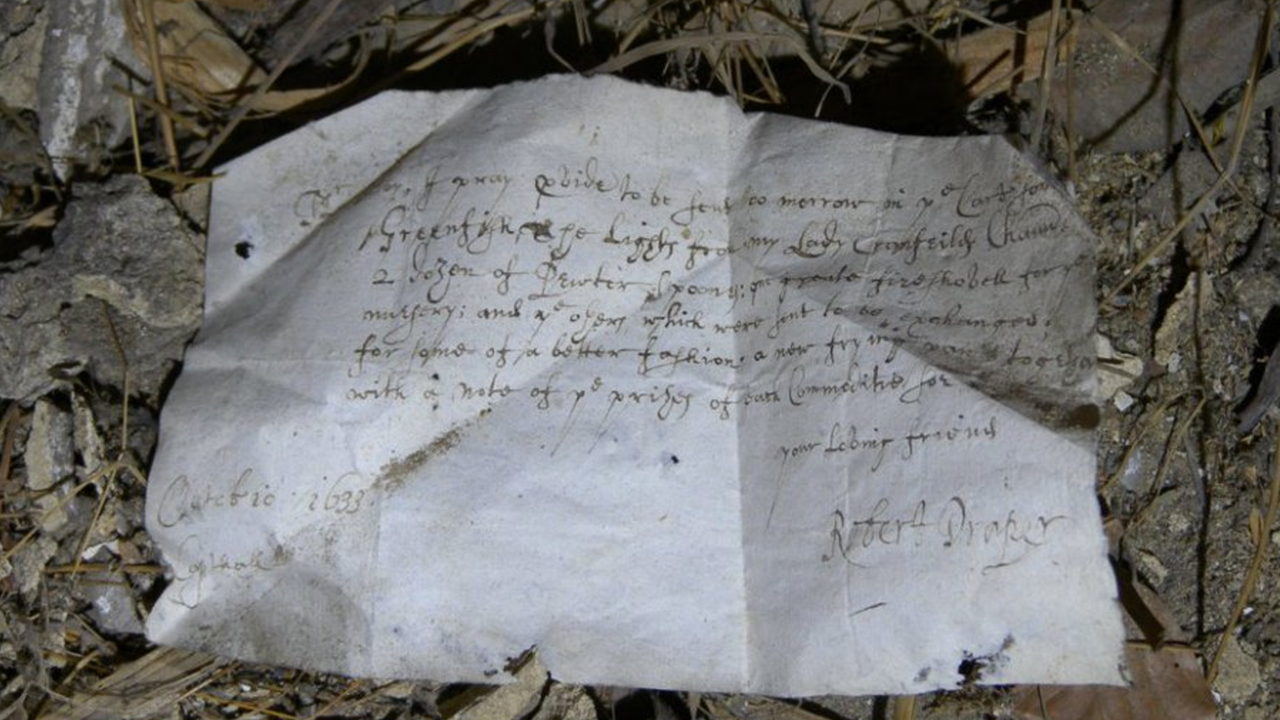 I pray pvide to be sent too morrow in ye Cart some
Greenfish, The Lights from my Lady Cranfeilds Cham
2 dozen of Pewter spoons: greate fireshovell for ye
nursery: and ye others which were sent to be exchanged
for some of a better fashion, a new frying pan together
with a note of ye prises of such Commodities for
your loving friend
Robert Draper
Octob 1633
Copthall